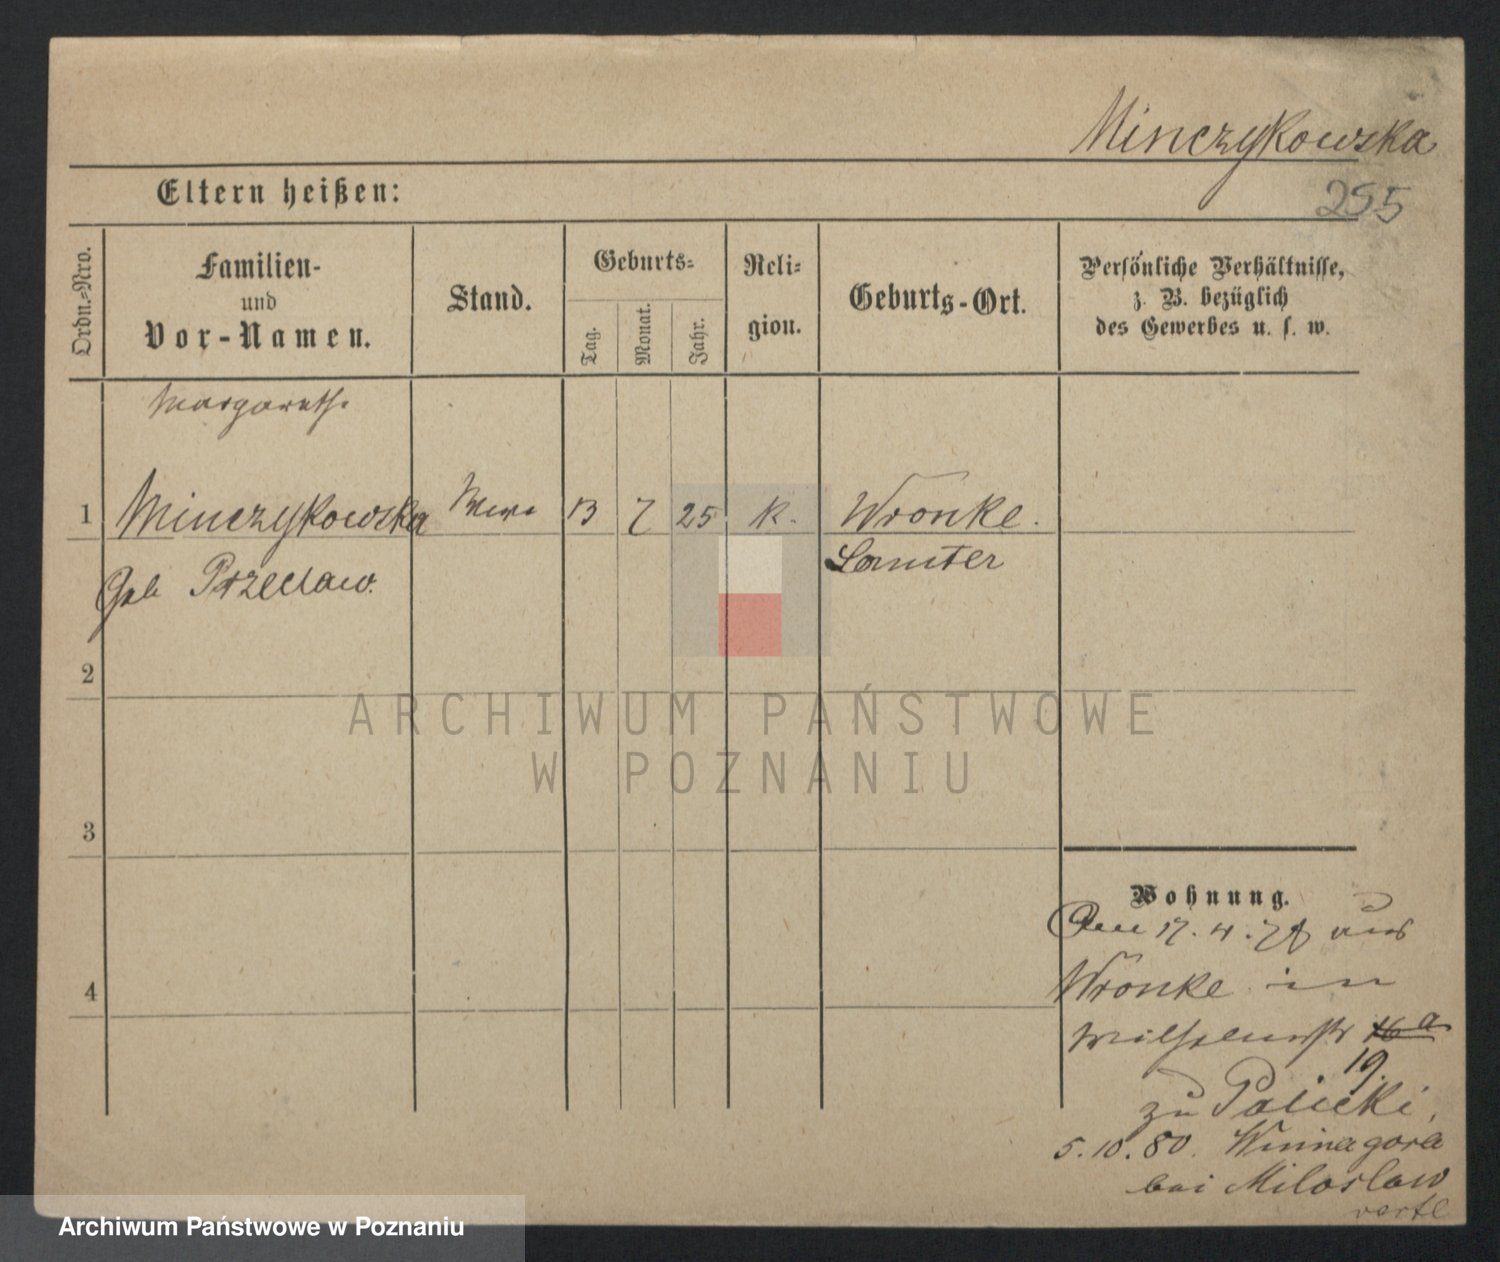 Minczykowska
255
Eltern heißen:
Ordn.-Nro.
Familien-
und
Vor-Namen.
Stand.
Geburts-
Tag.
Monat.
Jahr.
Reli-
gion.
Geburts-Ort.
Persönliche Verhältnisse,
z. B. bezüglich
des Gewerbes u. s. w.
Margareth.
1 Minczykowska 13 7 25 K. Wronke.
Geb Przeclaw. Samter
2
3
4
Wohnung.
Den 17. 4. 78 aus
Wronke in
Wilhelmstr 16 a
19.
zu Palicki,
5.10.80. Winnagora
bei Miloslaw
ARCHIWUM PAŃSTWOWE
W POZNANIU
Archiwum Państwowe w Poznaniu